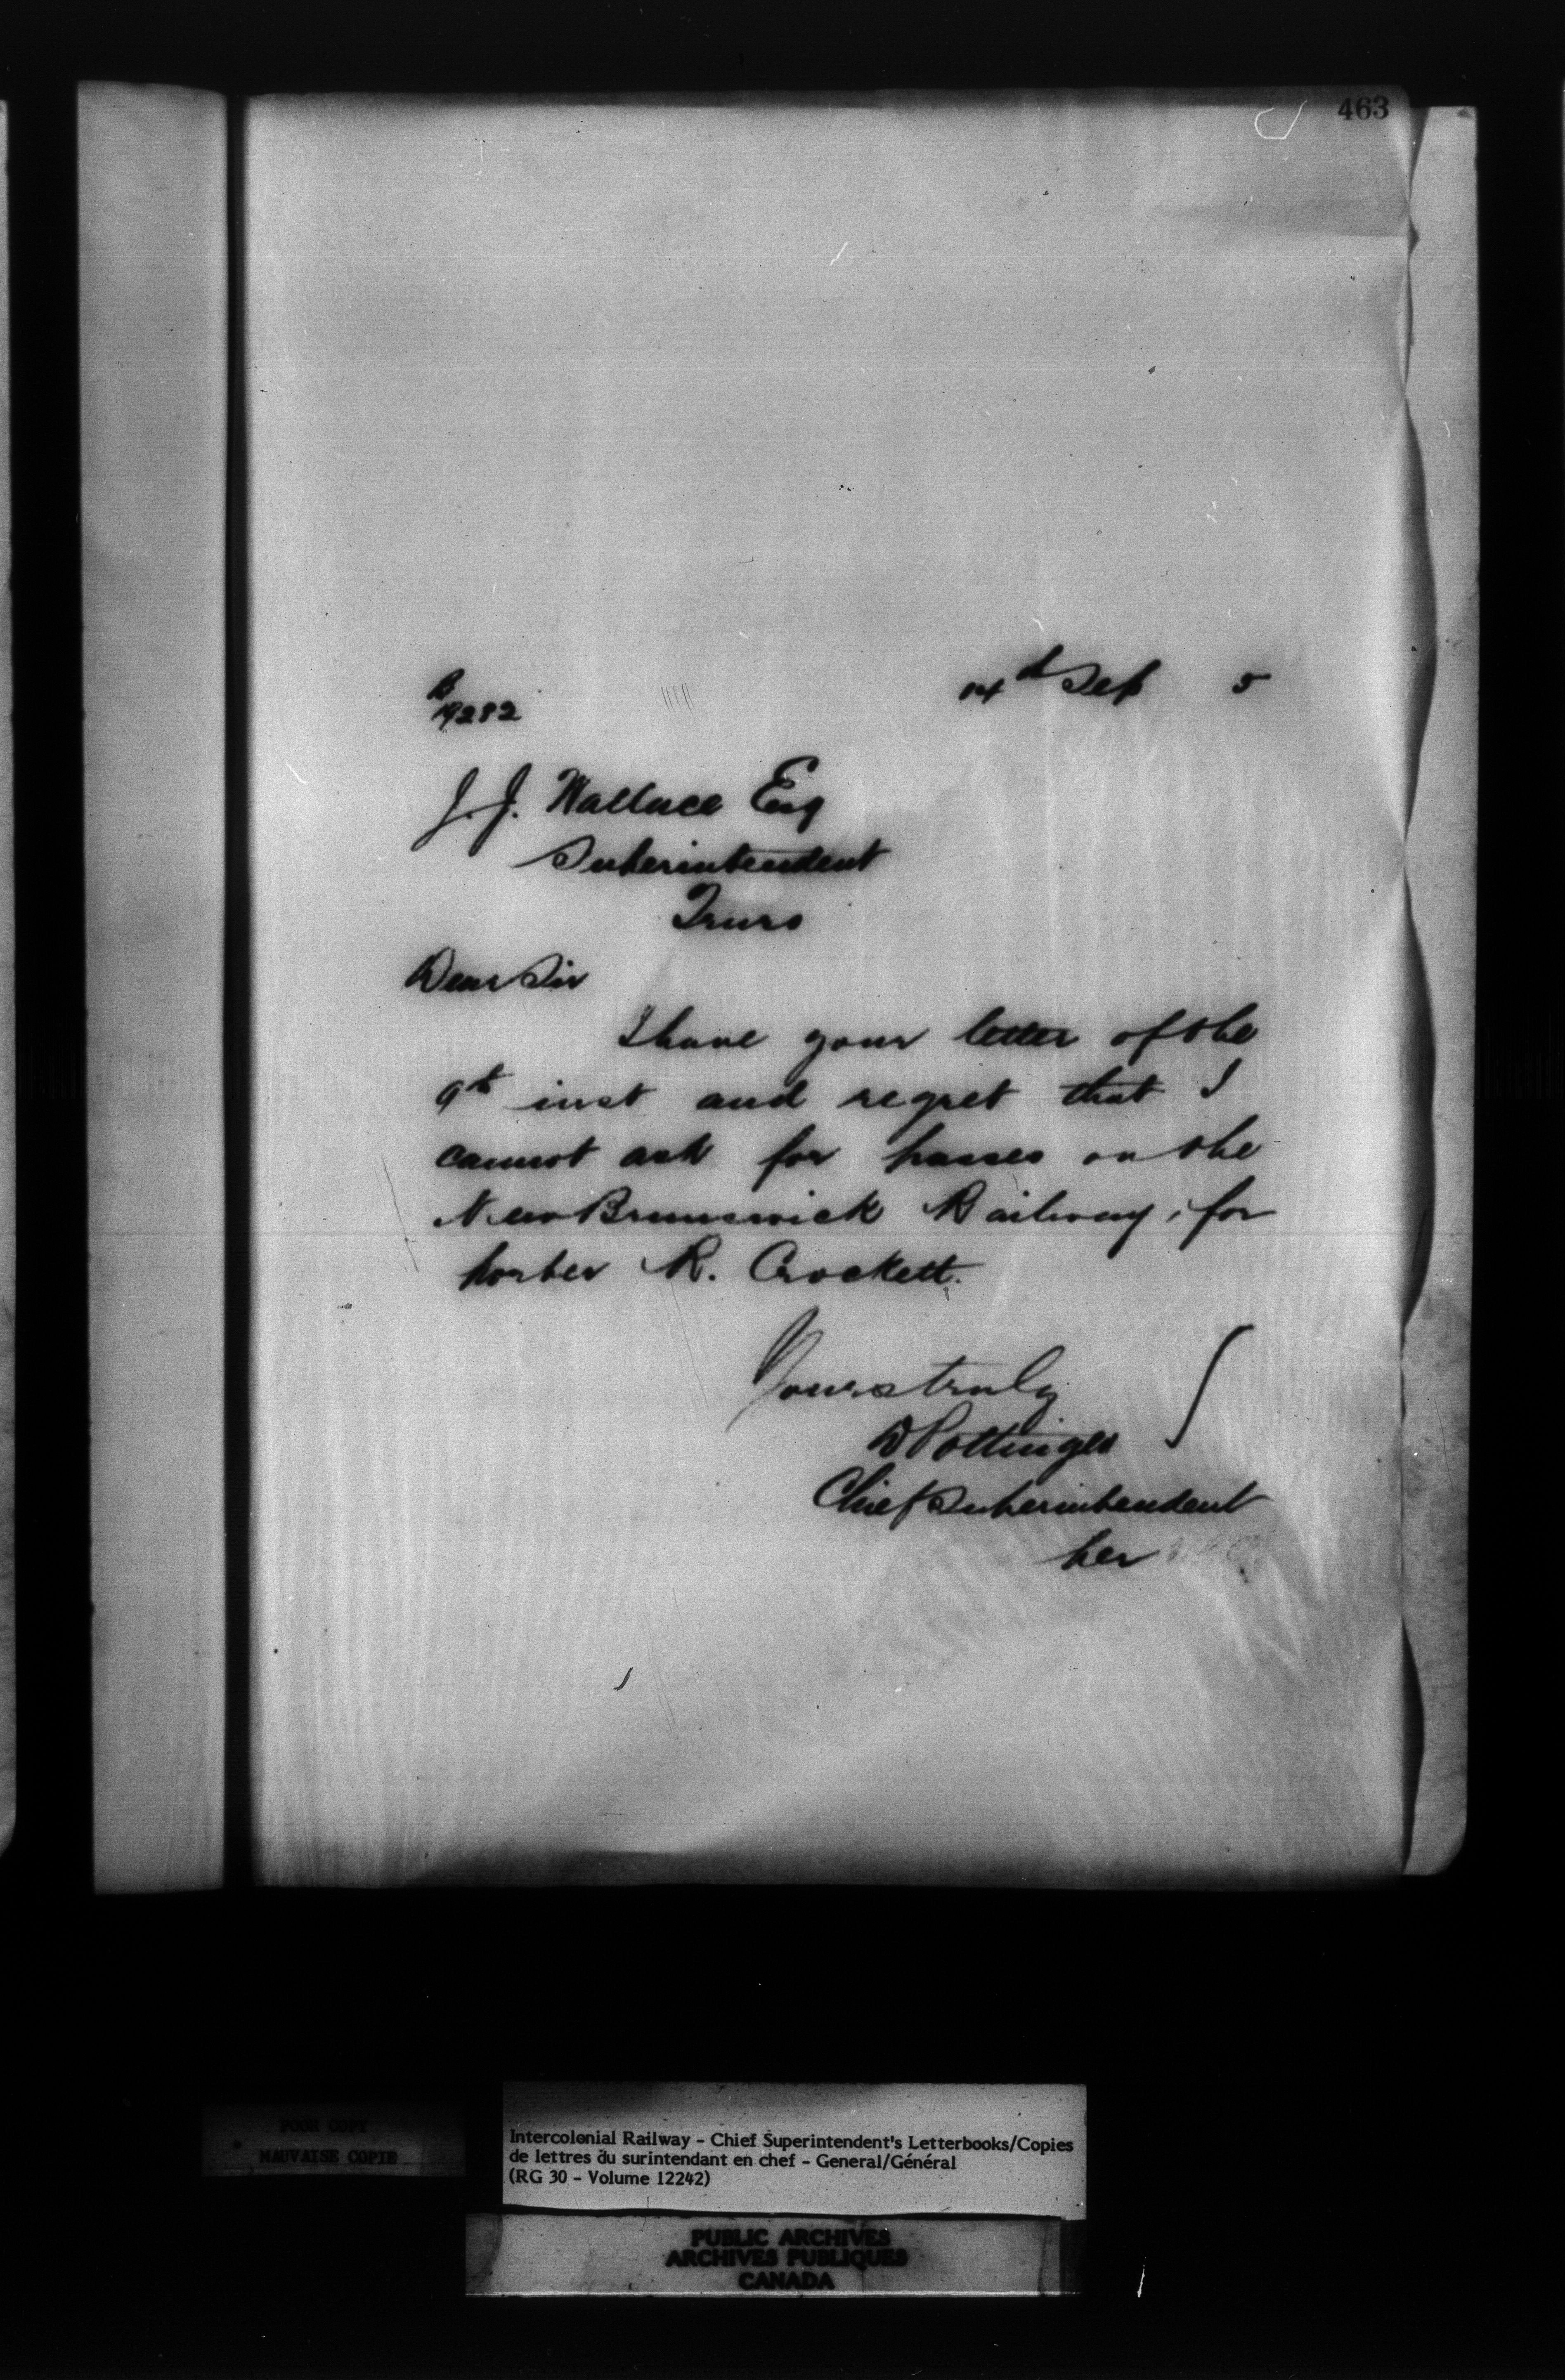 463
14th Sep 5
B
19282
J. J. Wallace Esq
Superintendent
Truro
Dear Sir
I have your letter of the
9th inst and regret that I
cannot ask for passes on the
New Brunswick Railway, for
porter R. Crockett.
Yours truly
D Pottinger
Chief Superintendent
per
POOR COPY
MAUVAISE COPIE
Intercolonial Railway - Chief Superintendent's Letterbooks/Copies
de lettres du surintendant en chef - General/Général
(RG 30 - Volume 12242)
PUBLIC ARCHIVES
ARCHIVES PUBLIQUES
CANADA